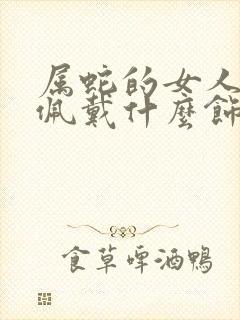 属蛇的女人
佩戴什麼飾
食草啤酒鴨